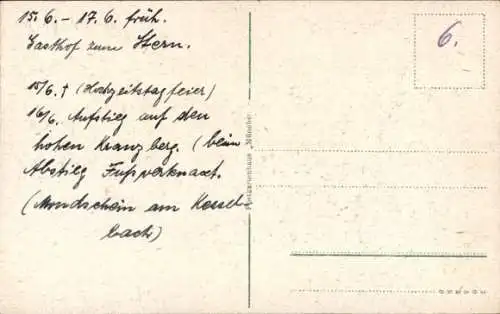 15.6. - 17.6. früh.
Gasthof zum Stern.
15/6. † (Hochzeitstagfeier)
16/6. Aufstieg auf den
hohen Kranzberg. (beim
Abstieg Fuss verknaxt.
(Mondschein am Kessel-
bach)
6.
Postkartenhaus München